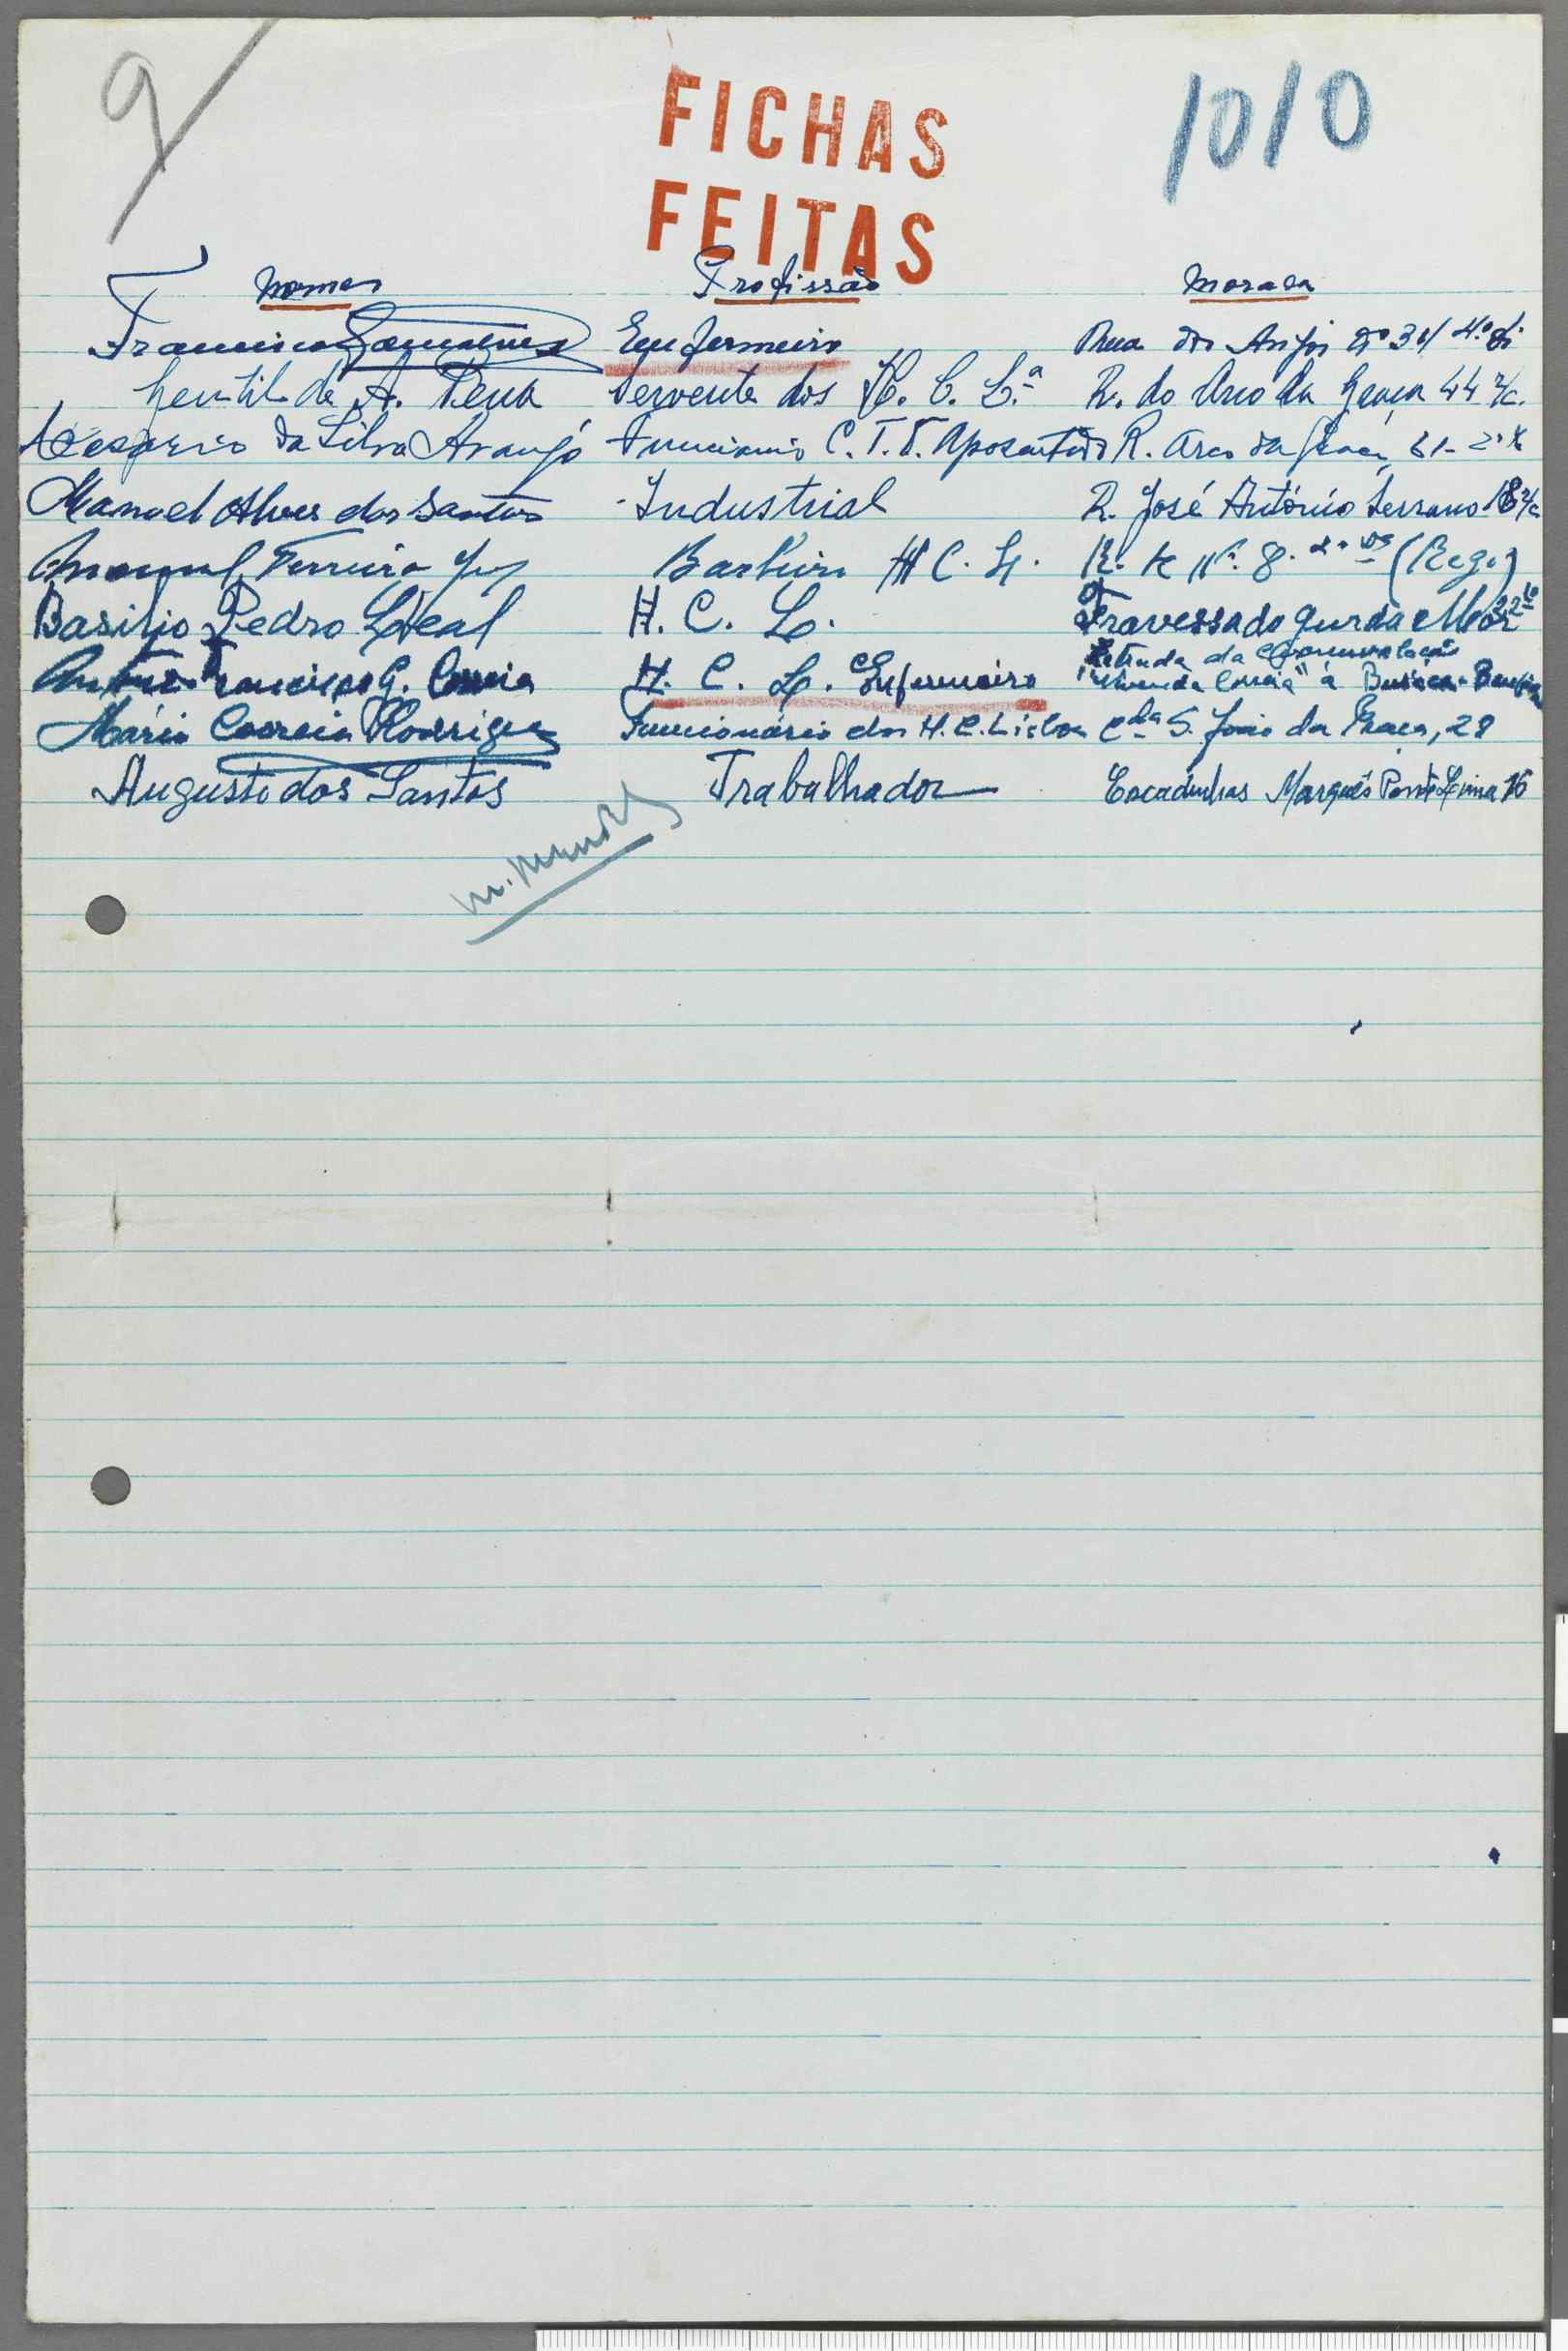 9
FICHAS
FEITAS
1010
Nomes Profissão Morada
Francisco Gonçalves Enfermeiro Rua dos Anjos nº 34 4º
Gentil de A. Pena Servente dos H. C. L.ª R. do Arco da Graça 44 r/c.
Cesário da Silva Araujo Funcionario C.T.T. Aposentado R. Arco da Graça, 61-2º
Manoel Alves dos Santos Industrial R. José António Serrano 18 r/c
Manuel Ferreira Barbeiro H C. L. R. K Nº. 8. (Rego)
Basilio Pedro Leal H. C. L. Travessa do Gurda Mór 22
António Francisco G. Correia H. C. L. Enfermeiro Estrada da Circunvalação
"Vivenda Correia" á Buraca - Benfica
Mário Correia Rodrigues Funcionário dos H. C. Lisboa Cda S. João da Praça, 28
Augusto dos Santos Trabalhador Escadinhas Marquês Ponte Lima 16
M. Mendes